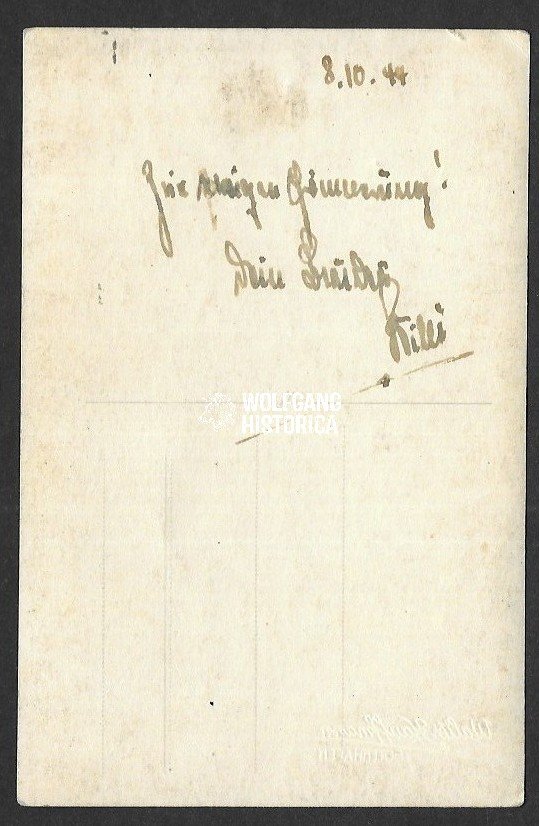 8.10.44
Zur ewigen Erinnerung!
Dein Bruder
Willi
WOLFGANG
HISTORICA